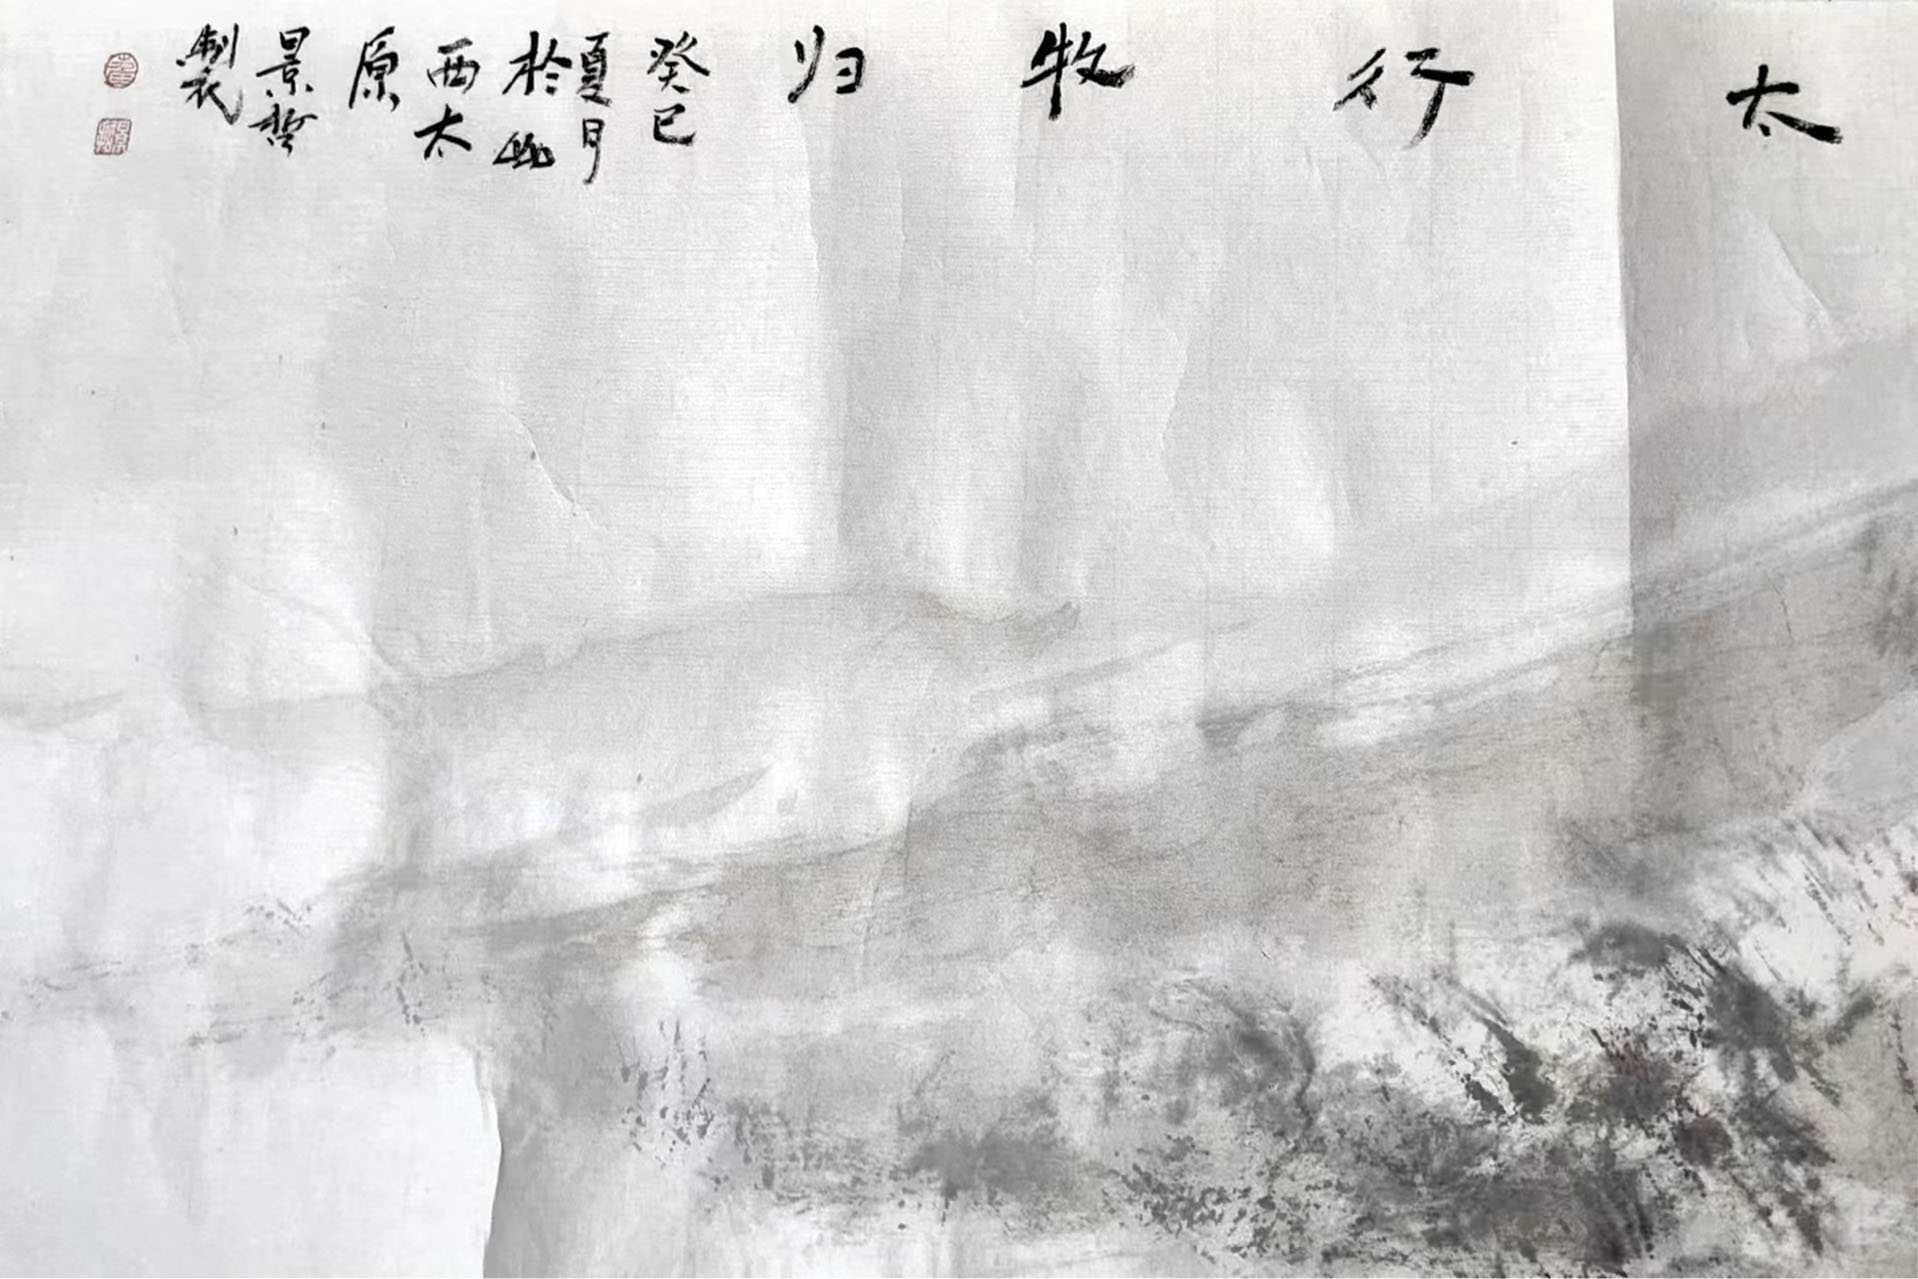 太行牧归
癸巳
夏月
於山
西太
原
景哲
製